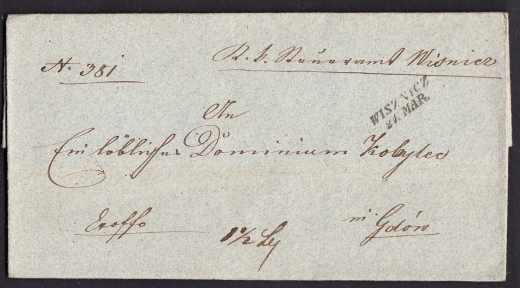 N. 381
K. k. Steueramt Wisnicz
WISZNICZ
27. MAR.
An
Ein löbliches Dominium Kobylec
in Gdów